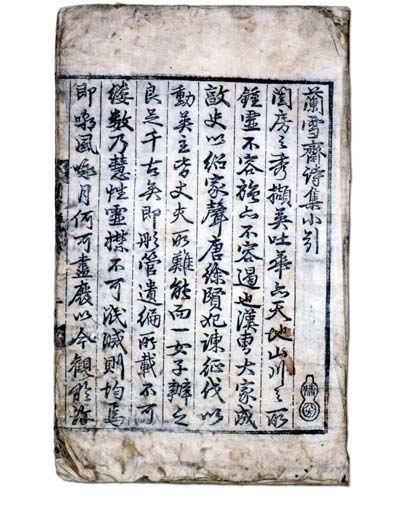 蘭雪齋詩集小引
閨房之秀擷英吐華亦天地山川之所
鍾靈不容強亦不容遏也漢曹大家成
敦史以紹家聲唐徐賢妃諫征伐以
動英主皆丈夫所難能而一女子辦之
良足千古矣即彤管遺編所載不可
縷數乃慧性靈襟不可泯滅則均焉
即嘲風咏月何可盡廢以今觀於許